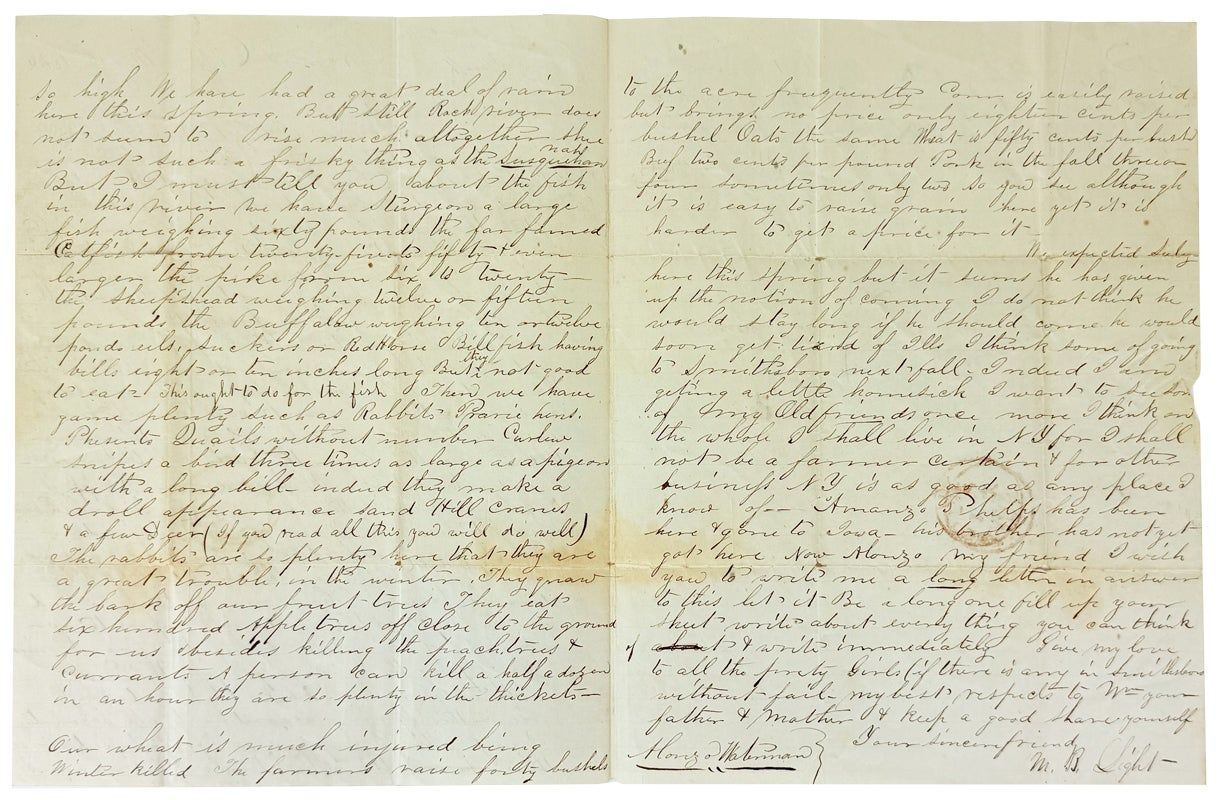 so high We have had a great deal of rain
here this spring. But still Rock river does
not seem to rise much altogether she
is not such a frisky thing as the Susquehan
nah
But I must tell you about the fish
in this river we have Sturgeon a large
fish weighing sixty pounds the far famed
Catfish from twenty-five to fifty & even
larger the pike from six to twenty
the sheepshead weighing twelve or fifteen
pounds the Buffalow weighing ten or twelve
ponds eels, suckers or Red Horse Bill fish having
bills eight or ten inches long But they not good
to eat This ought to do for the fish Then we have
game plenty such as Rabbits Prarie hens.
Phesents Quails without number Curlew
snipes a bird three times as large as a pigeon
with a long bill indeed they make a
droll appearance Sand Hill cranes
& a few Deer (If you read all this you will do well)
The rabbits are so plenty here that they are
a great trouble, in the winter. They gnaw
the bark off our fruit trees They eat
six hundred Apple trees off close to the ground
for us besides killing the peach trees &
Currants A person can kill a half a dozen
in an hour they are so plenty in the thickets—
Our wheat is much injured being
Winter killed The farmers raise forty bushels
to the acre frequently Corn is easily raised
but brings no price only eighteen cents per
bushel Oats the same Wheat is fifty cents per bush
Beef two cents per pound Pork in the fall three or
four sometimes only two so you see although
it is easy to raise grain here yet it is
harder to get a price for it
We expected
here this spring but it seems he has given
up the notion of coming I do not think he
would stay long if he should come he would
soon get tierd of Ills I think some of going
to Smithsboro next fall. Indeed I am
geting a little homesick I want to see som
of my Old friends once more I think on
the whole I shall live in NY for I shall
not be a farmer certain & for other
business NY is as good as any place I
know of— Amanzo Phelps has been
here & gone to Iowa— his brother has not yet
got here. Now Alonzo my friend I wish
you to write me a long letter in answer
to this let it Be a long one fill up your
sheet write about every thing you can think
of & write immediately Give my love
to all the prety Girls (if there is any in Smithsboro
without fail— my best respects to Wm your
father & Mother & keep a good share yourself
Your sincere friend
Alonzo Waterman
M. B. Light